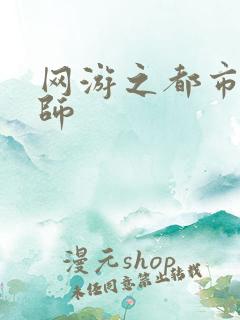 网游之都市
師
漫元shop
未经同意禁止转载